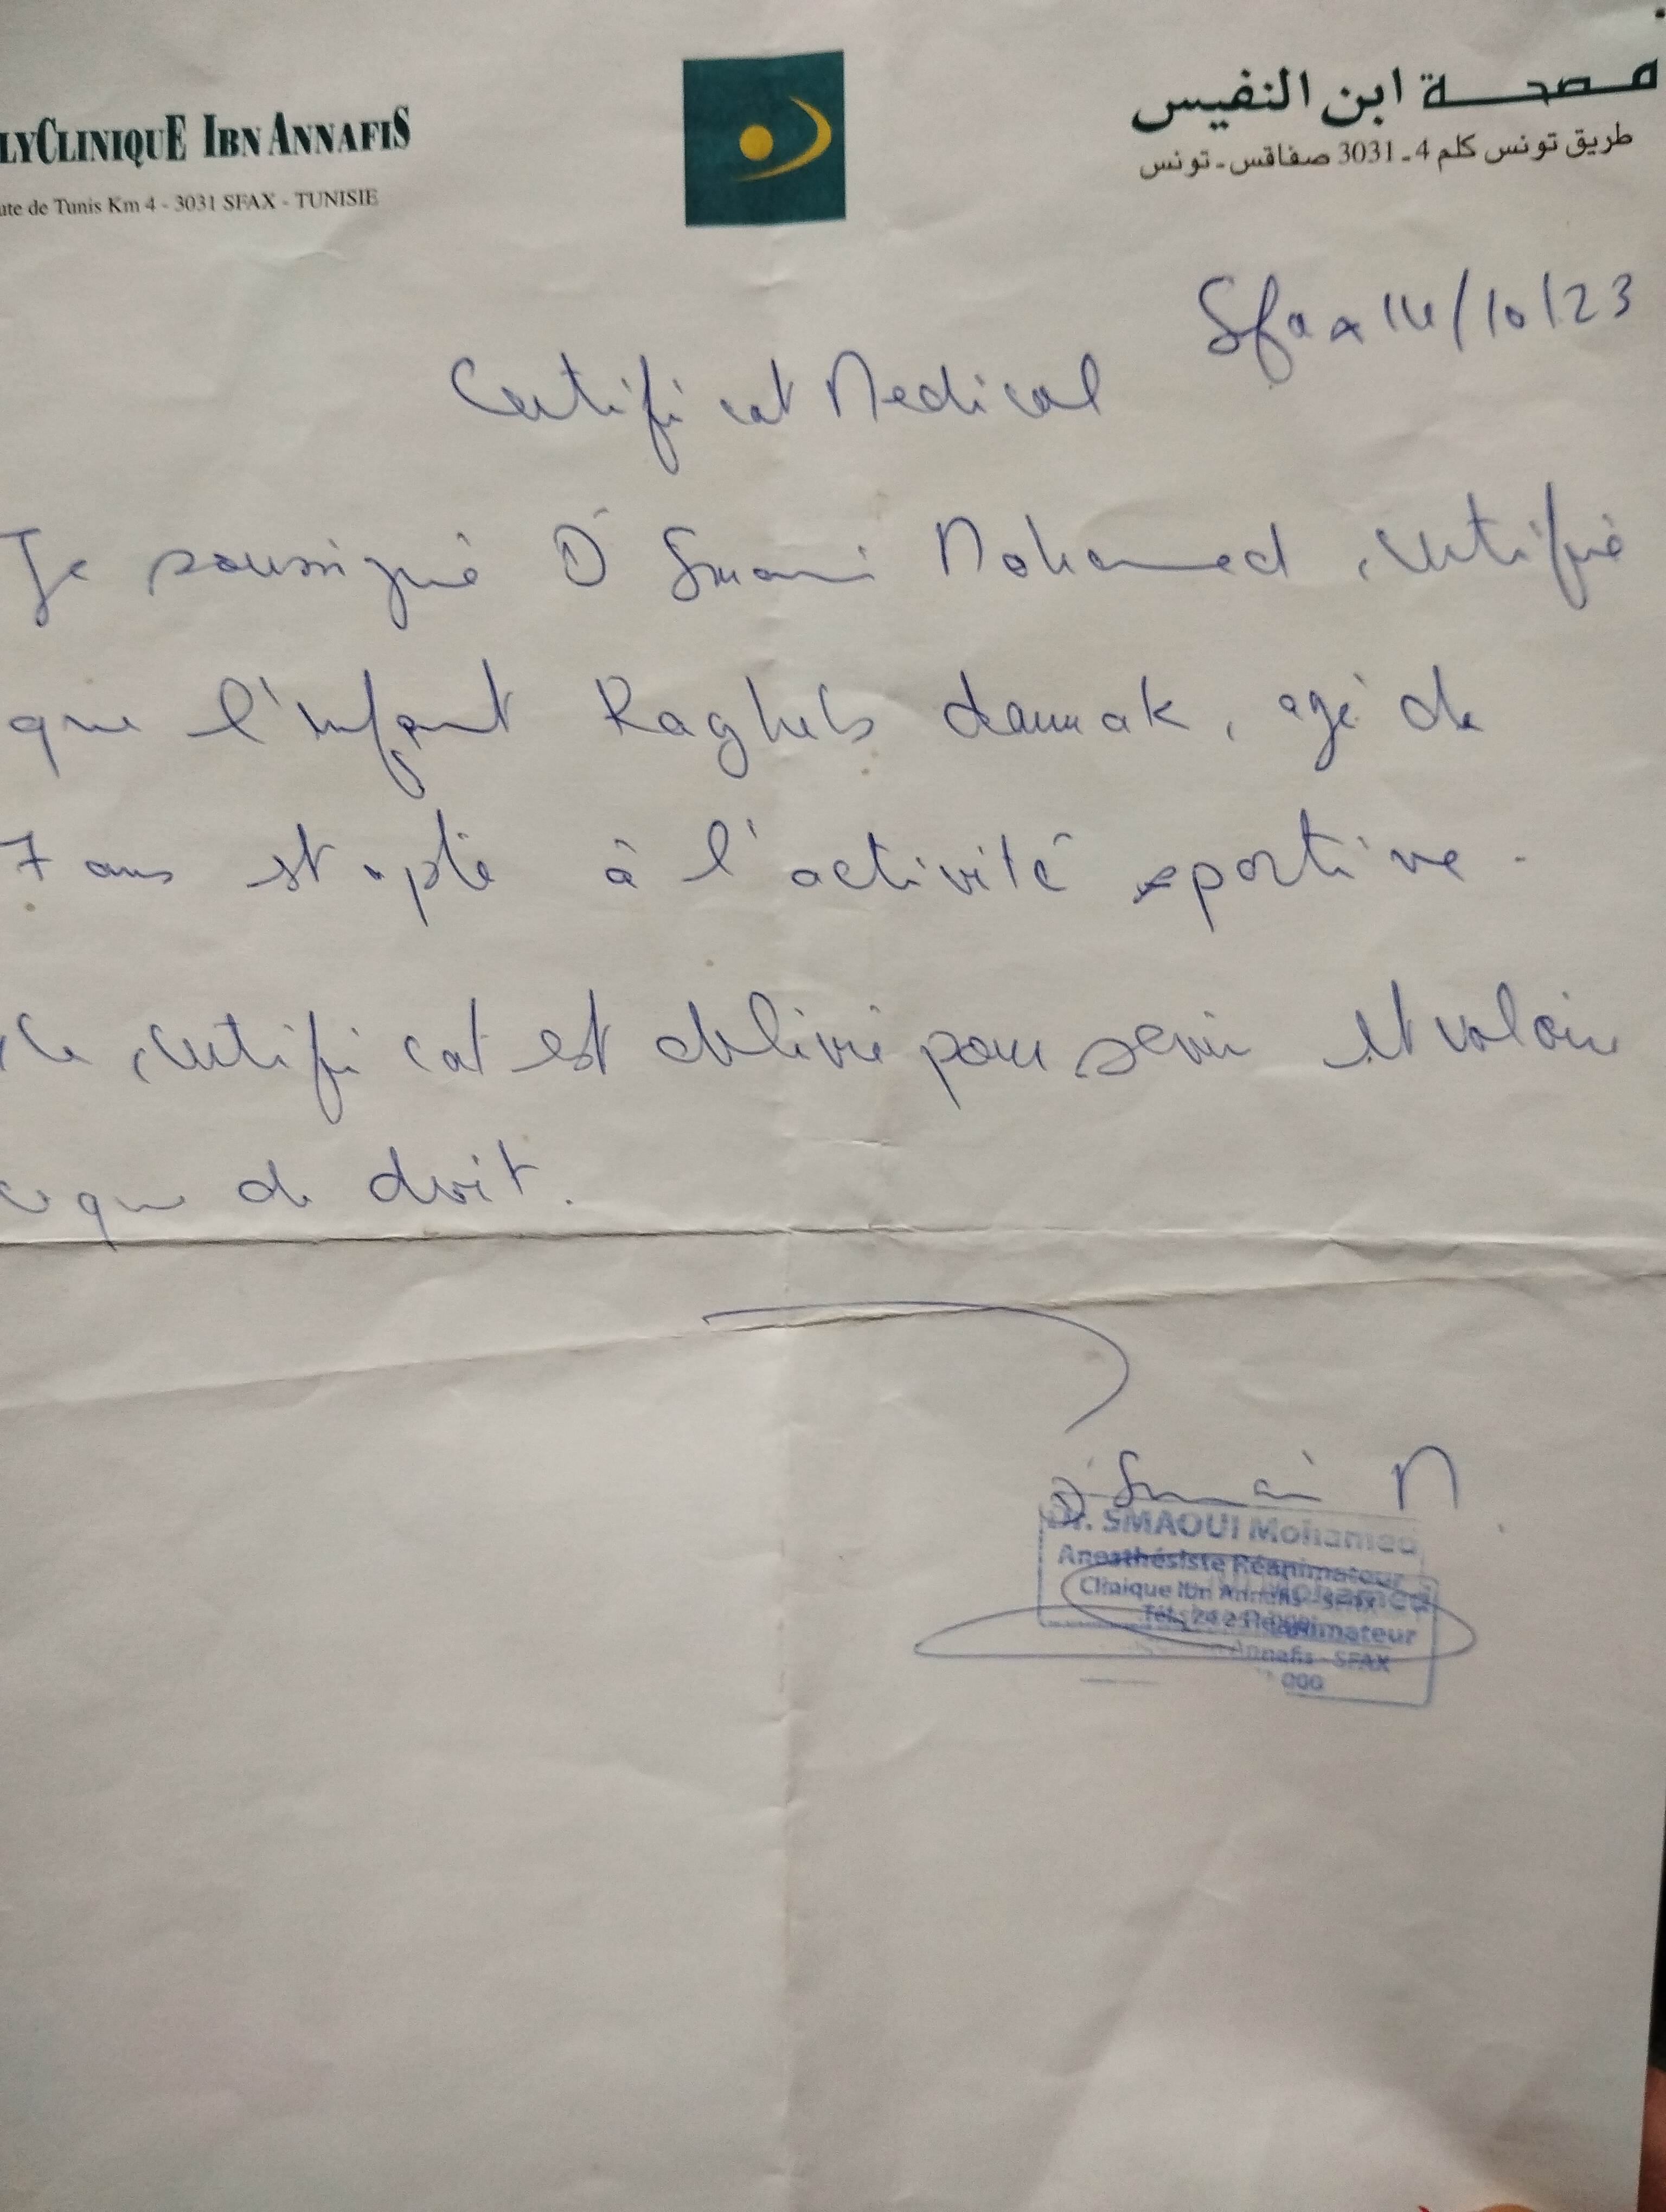 LYCLINIQUE IBN ANNAFIS
ute de Tunis Km 4 - 3031 SFAX - TUNISIE
مصحة ابن النفيس
طريق تونس كلم 4 ـ 3031 صفاقس ـ تونس
Sfax 14/10/23
Certificat Medical
Je soussigné Dr Smaoui Mohamed, certifie
que l'enfant Ragheb damak, agé de
7 ans est apte à l'activité sportive.
Ce certificat est délivré pour servir et valoir
ce que de droit.
Dr Smaoui M
Dr. SMAOUI Mohamed
Anesthésiste Réanimateur
Clinique Ibn Annafis - SFAX
Tél.: 24 2
Mohamed
Réanimateur
Annafis - SFAX
000